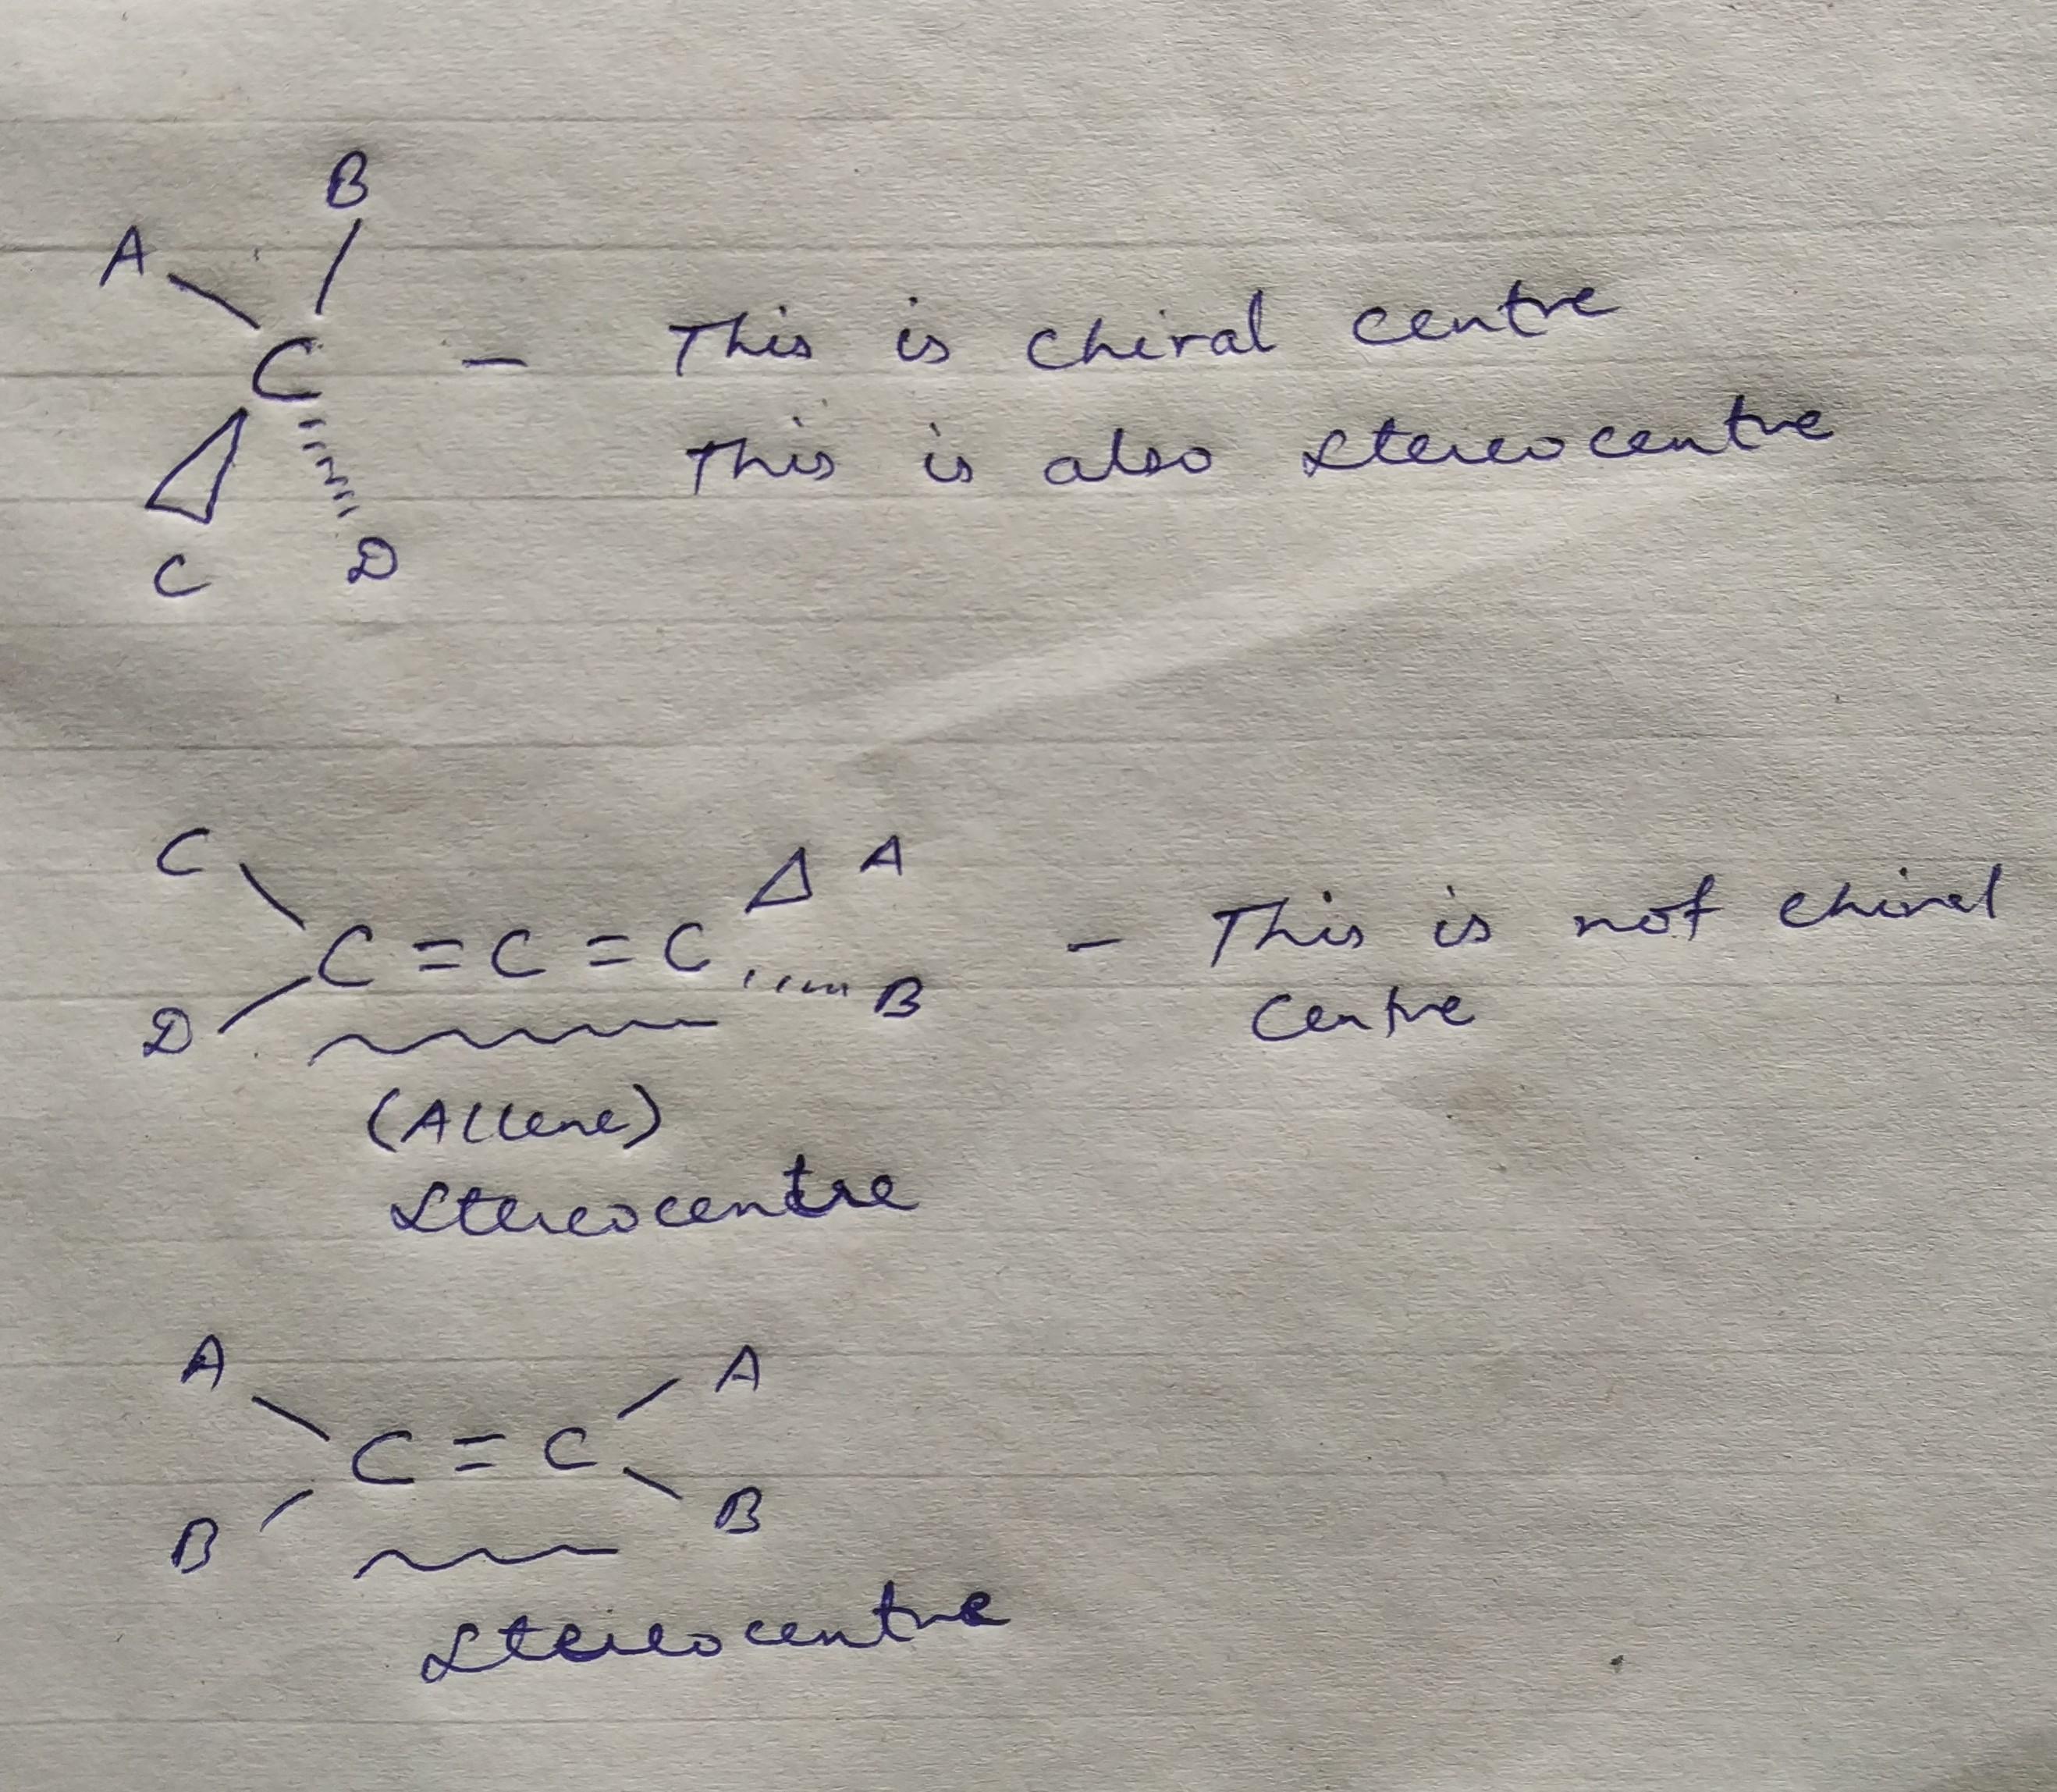 B
A
C - This is chiral centre
This is also stereocentre
C D
C A
C = C = C - This is not chiral
D B centre
(Allene)
Stereocentre
A A
C = C
B B
Stereocentre